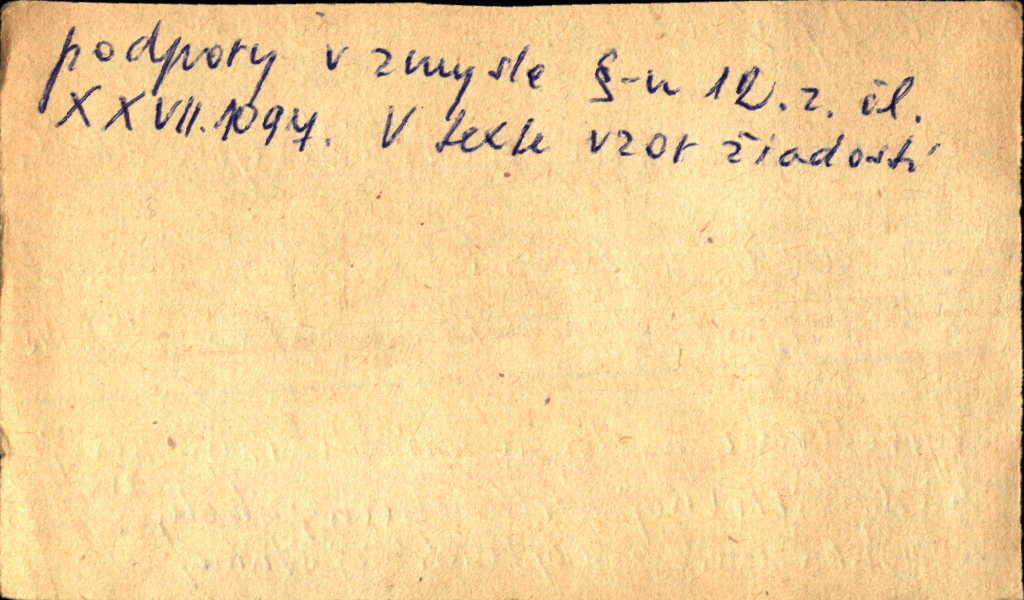 podpory v zmysle §-u 12. z. čl.
XXVII.1097. V texte vzor žiadosti